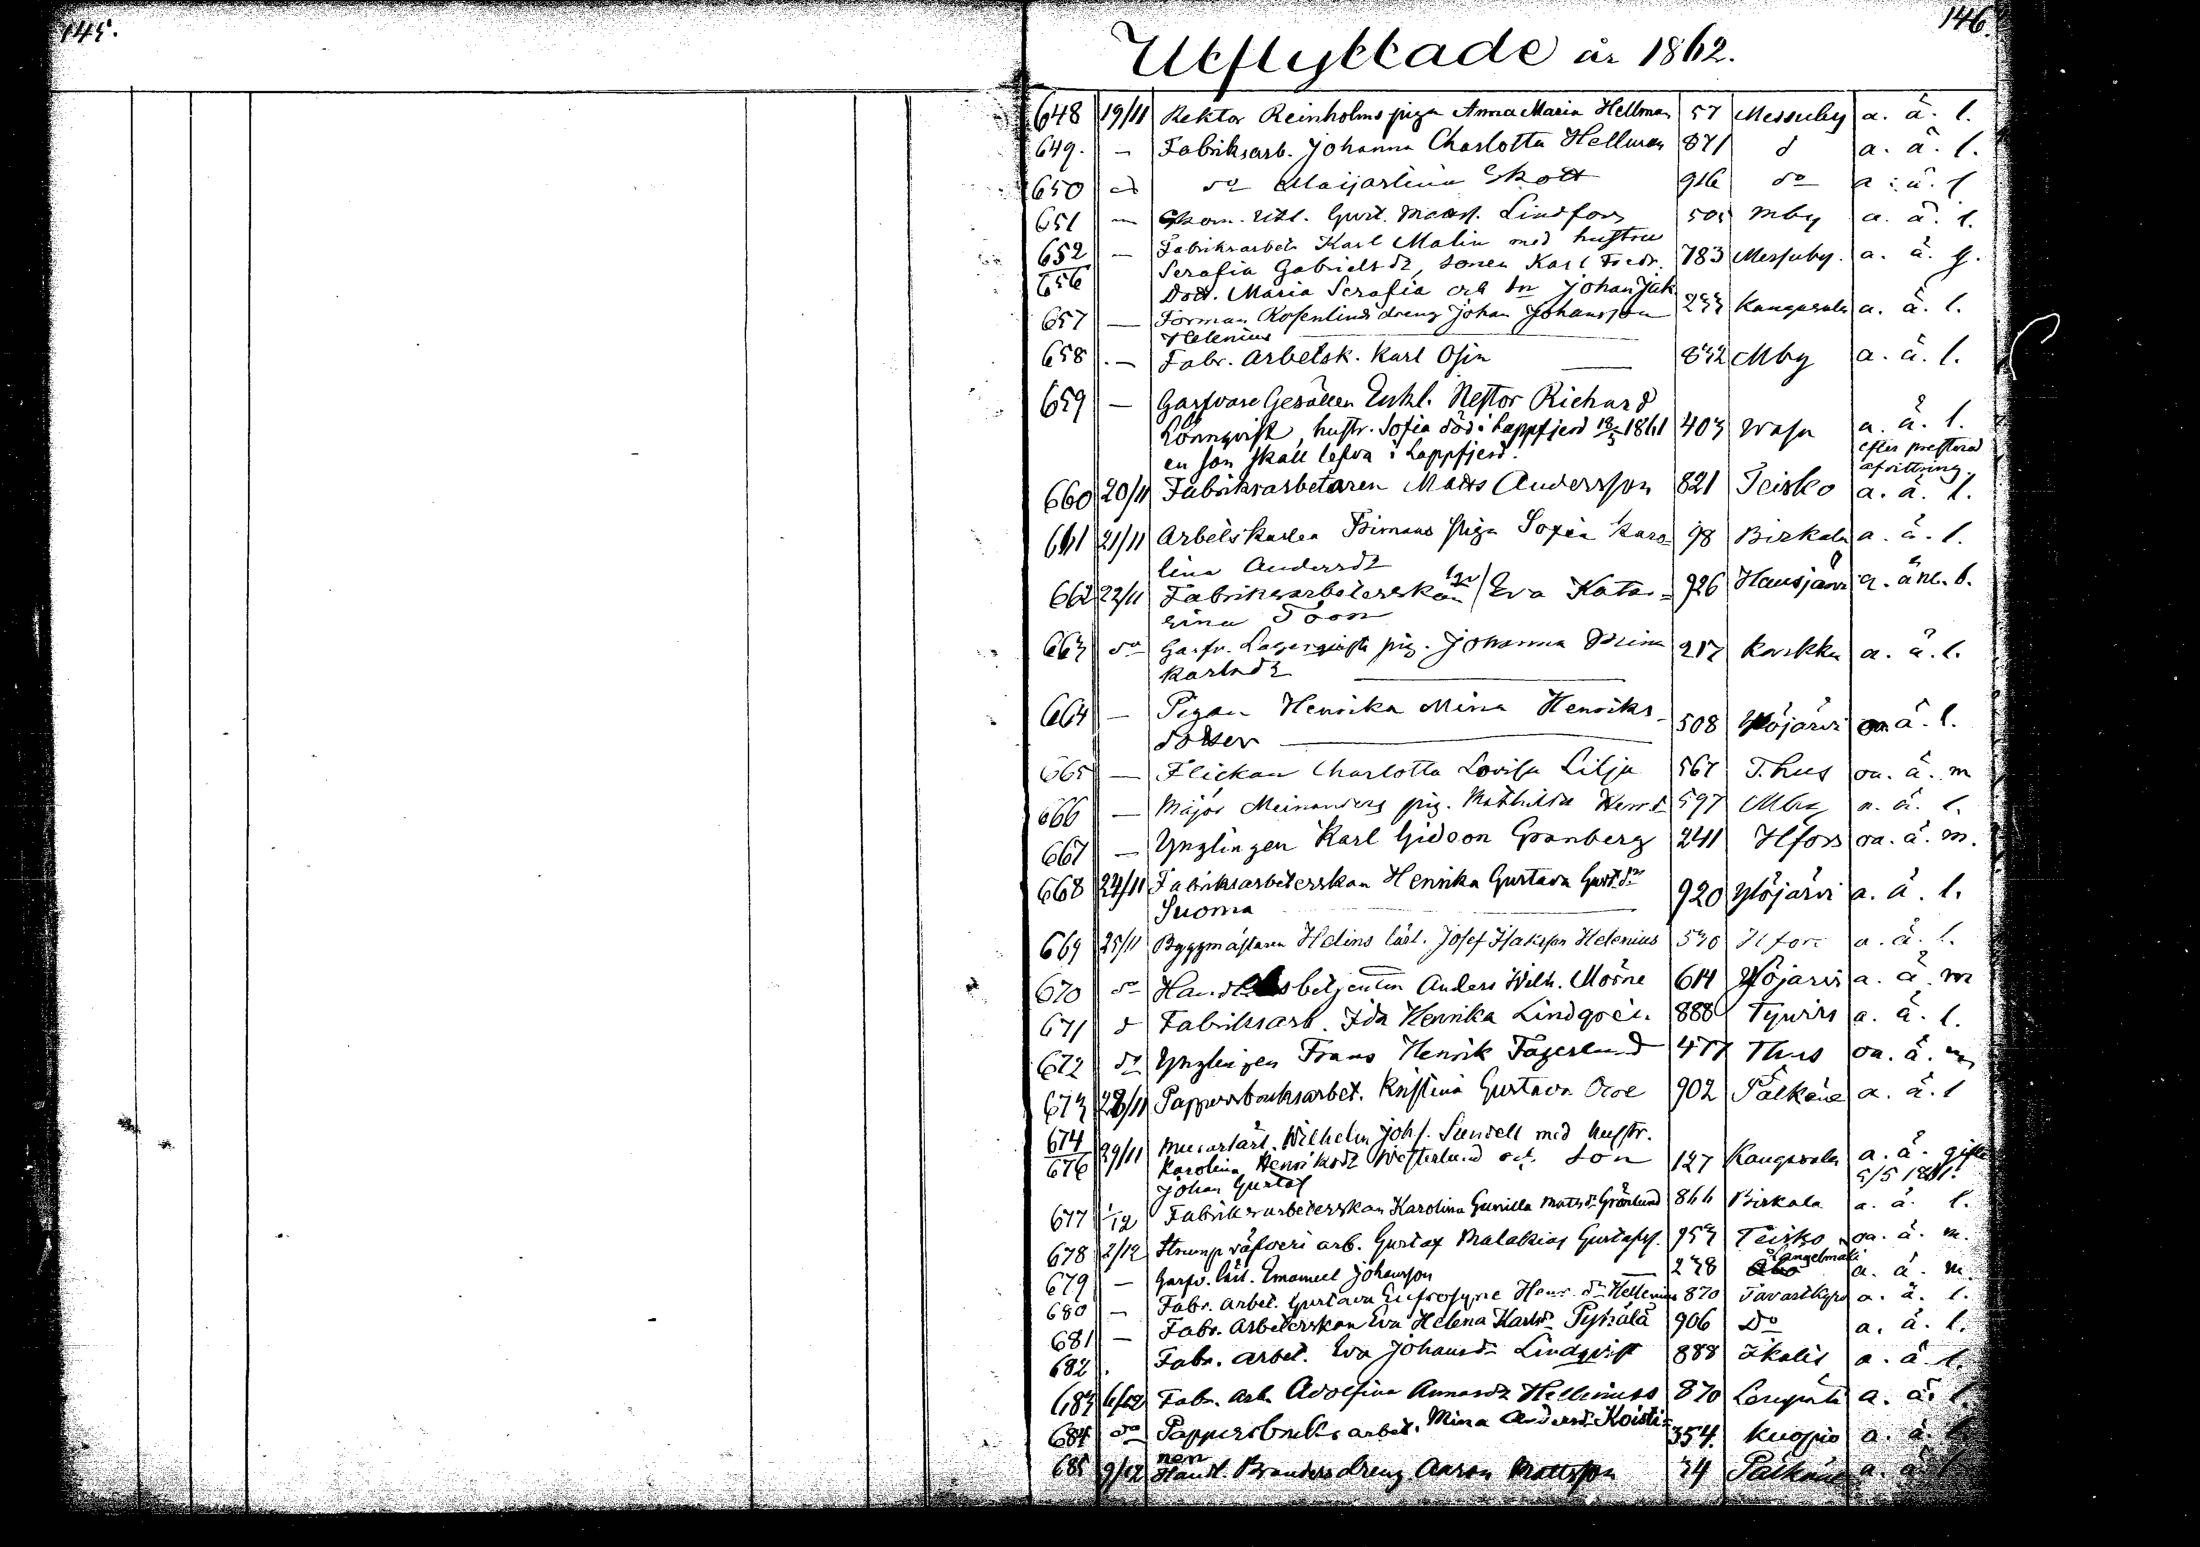 145.
146.
Utflyttade år 1862.
648 19/11 Rektor Reinholms piga Anna Maria Hellman 57 Messuby a. ä. l.
649. — Fabriksarb. Johanna Charlotta Hellman 871 d a. ä. l.
650 do do Maijastina Skott 916 do a. ä. l
651 — Gust. Matss. Lindfors 505 Mby a. ä. l.
652 — Fabriksarbet. Karl Malin med hustru
656 Serafia Gabrielsdr, sonen Karl Fredr. 783 Messuby. a. ä. g.
Dott. Maria Serafia och sn Johan Jak
657 — Forman Rosenlinds dreng Johan Johansson 233 Kangasala a. ä. l.
Helenius
658 . — Fabr. Arbetsk. Karl Osin 832 Mby a. ä. l.
659 — Garfvare Gesällen Enkl. Nestor Richard
Lönnqvist, hustr. Sofia död i Lappfjerd 18/3 1861 403 Wasa a. ä. l.
en son skall lefva i Lappfjerd. efter presterad afvittring.
660 20/11 Fabriksarbetaren Matts Andersson 821 Teisko a. ä. l.
661 21/11 Arbetskarlen Frimans piga Sofia Karo= 98 Birkala a. ä. l.
lina Andersdr
662 22/11 Fabriksarbeterskan Eva Kata= 926 Hausjärvi a. änl. b.
rina Toon
663 do Garfv. Lagerqvists pig. Johanna Mina 217 Karkku a. ä. l.
Karlsdr
664 — Pigan Henrika Mina Henriks- 508 Ylöjärvi oa. ä. l.
dotter
665 — Flickan Charlotta Lovisa Lilja 567 T.hus oa. ä. m
666 — Major Meinanders pig. Mathilda Henr.d. 597 Mby a. ä. l.
667 — Ynglingen Karl Gideon Granberg 241 Hfors oa. ä. m.
668 24/11 Fabriksarbeterskan Henrika Gustava Gust.dr 920 Ylöjärvi a. ä. l.
Suoma
669 25/11 Byggmästaren Helins lärl. Josef Isaksson Helenius 530 Hfors a. ä. l.
670 do Handelsbetjenten Anders Wilh. Mörne 614 Ylöjärvi a. ä. m
671 d Fabriksarb. Ida Henrika Lindqvi. 888 Tyrvis a. ä. l.
672 do Ynglingen Frans Henrik Fagerlund 477 Thus oa. ä. m
673 28/11 Pappersbruksarbet. Kristina Gustava Oroe 902 Pälkäne a. ä. l
674 29/11 Murarlärl. Wilhelm Johs. Sundell med hustr.
676 Karolina Henriksdr Westerlund och son 127 Kangasala a. ä. gifta
Johan Gustaf 5/5 1861.
677 1/12 Fabriksarbeterskan Karolina Gunilla Mattsdr Grönlund 866 Birkala a. ä. l.
678 2/12 Strumpväfveri arb. Gustaf Malakias Gustafss. 953 Teisko oa. ä. m.
679 — Garfv. lärl. Emanuel Johansson 238 Åbo Längelmäki a. ä. m.
680 — Fabr. arbet. Gustava Eufrosyne Henr.dr Hellenius 870 Tavastkyro a. ä. l.
681 — Fabr. Arbeterskan Eva Helena Karlsdr Pyhälä 906 Do a. ä. l.
682 . Fabr. arbet. Eva Johansdr Lindqvist 888 Ikalis a. ä. l.
683 6/12 Fabr. Arb. Adolfina Annasdr Helleniuss 870 Lempälä a. ä. l.
684 do Pappersbruks arbet. Mina Andersdr Koisti= 354. Kuopio a. ä. l.
nen
685 9/12 Handl. Branders dreng Aaron Mattsson 34 Pälkäne a. ä. l